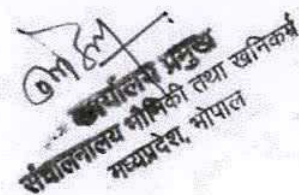 कार्यालय प्रमुख
संचालनालय भौमिकी तथा खनिकर्म
मध्यप्रदेश, भोपाल